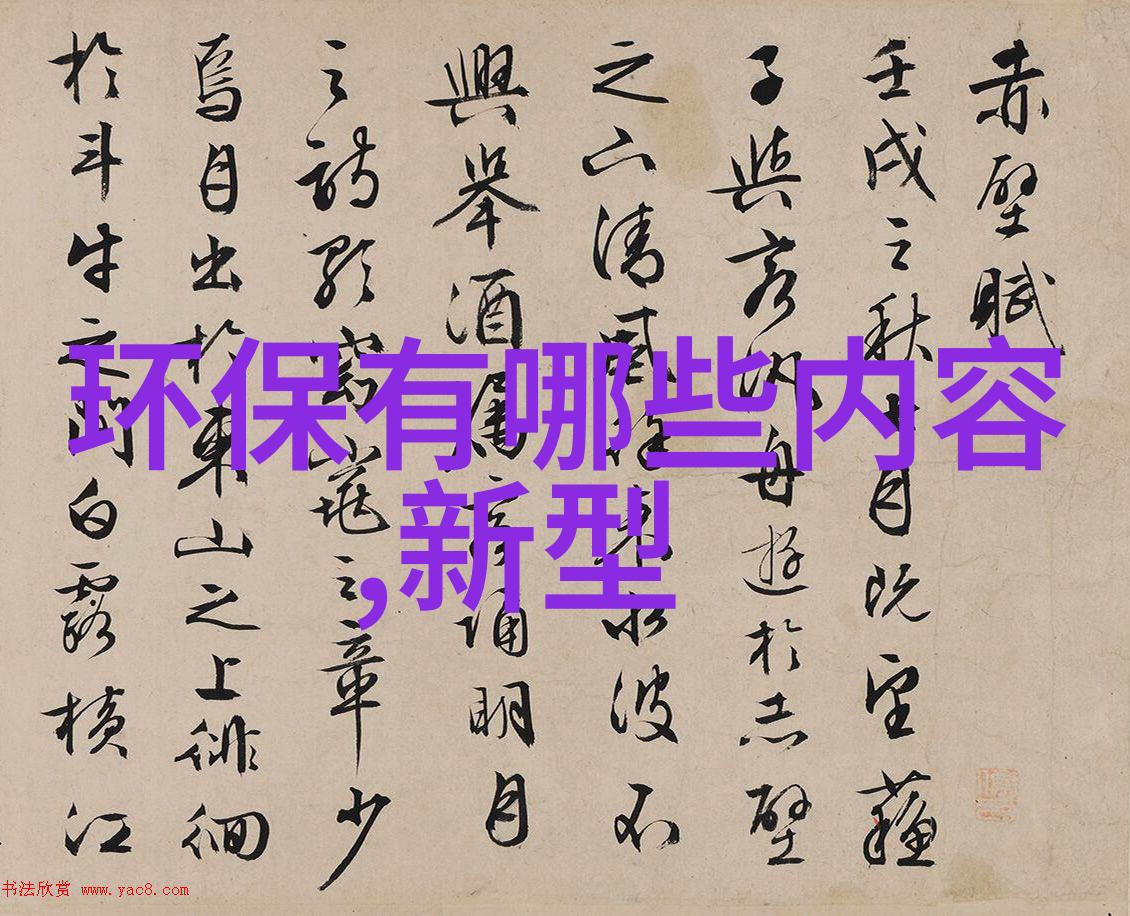 赤壁賦
壬戌之秋七月既望蘇
子與客泛舟遊於赤壁
之下清風徐來水波不
興舉酒屬客誦明月
之詩歌窈窕之章少
焉月出於東山之上徘徊
於斗牛之間白露橫江
环保有哪些内容
,新型
书法欣赏 www.yac8.com